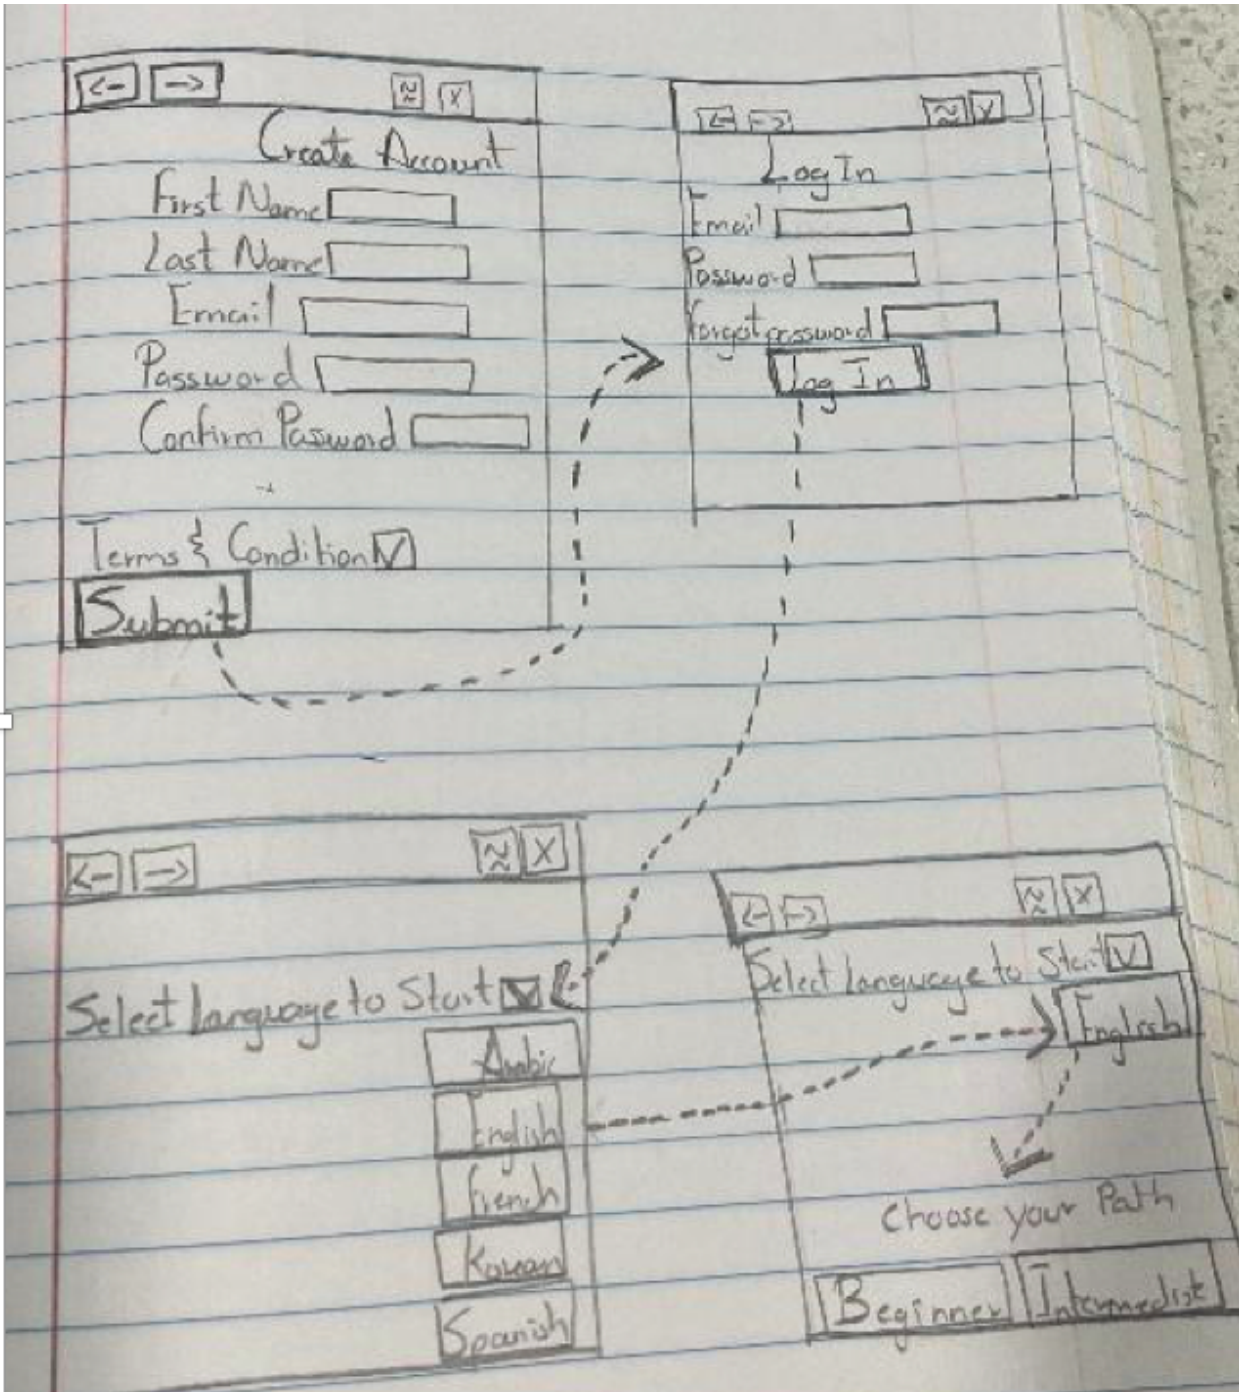 <- -> ≈ X
Create Account
First Name
Last Name
Email
Password
Confirm Password
Terms & Condition
Submit
<- -> ≈ X
Log In
Email
Password
Forgot password
Log In
<- -> ≈ X
Select Language to Start
Arabic
English
French
Korean
Spanish
<- -> ≈ X
Select Language to Start
English
Choose your Path
Beginner Intermediate